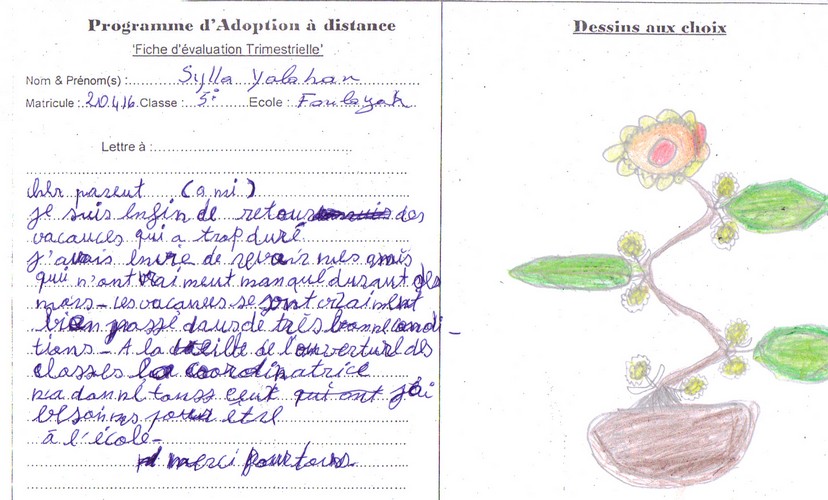 Programme d'Adoption à distance
'Fiche d'évaluation Trimestrielle'
Nom & Prénom(s) : Sylla Yalahan
Matricule : 210416 Classe : 5° Ecole : Foulayah
Lettre à :
cher parent (ami)
je suis enfin de retour des
vacances qui a trop duré
j'avais envie de revoir mes amis
qui n'ont vraiment manqué durant des
mois - Les vacances se sont vraiment
bien passé dans de très bonne condi-
tions - A la veille de l'ouverture des
classes la coordinatrice
ma donné touss ceut qui ont j'ai
besoines pour être
à l'école-
merci pour tous
Dessins aux choix